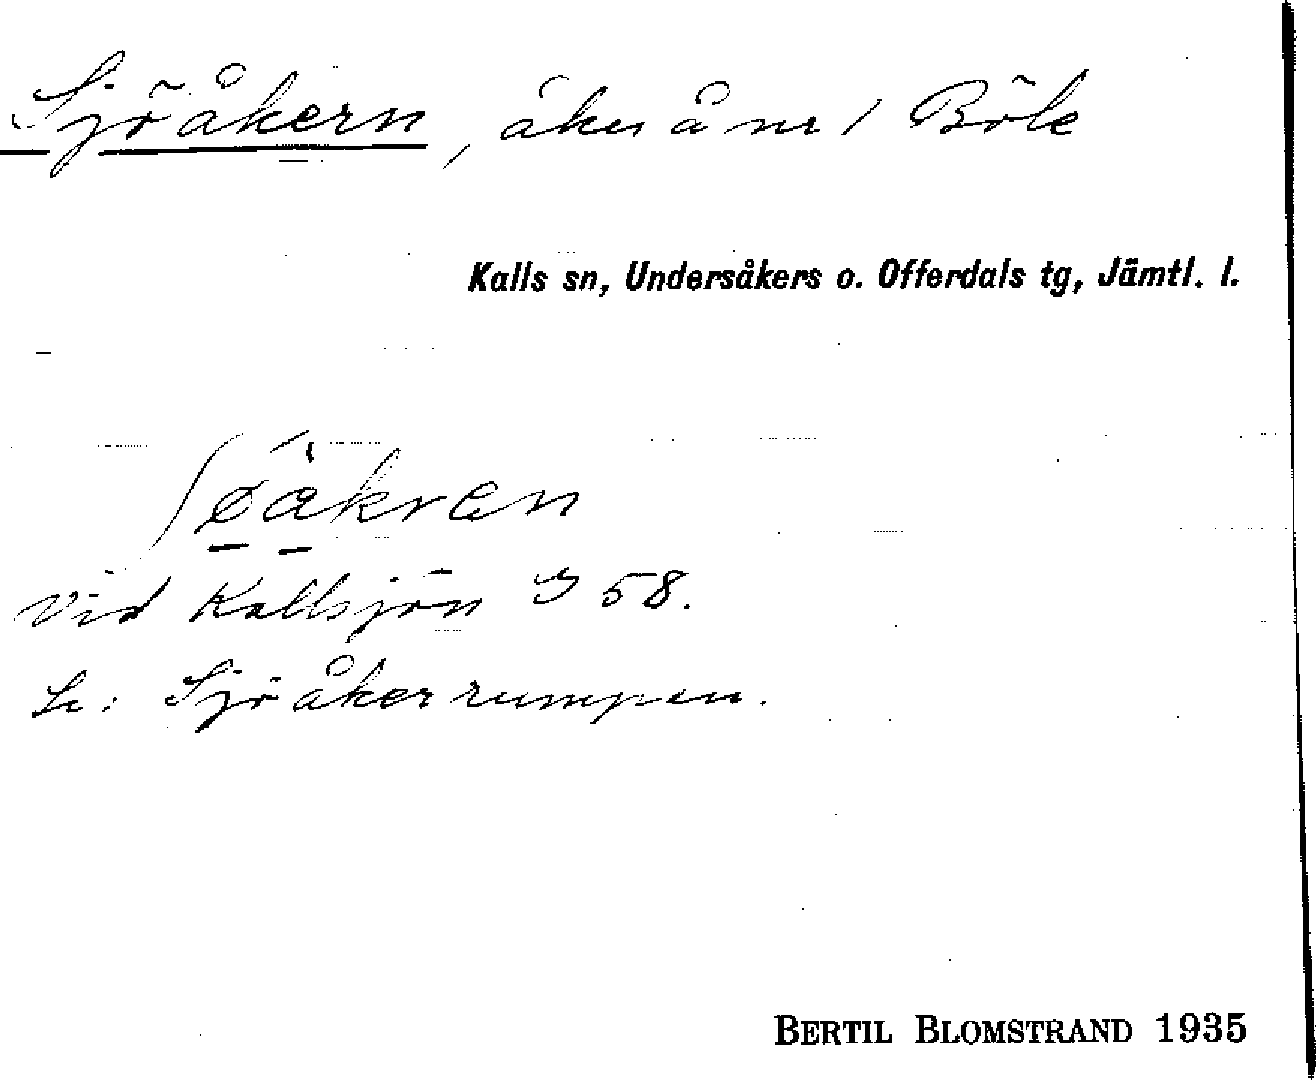 Sjöåkern, åker å nr 1 Böle
Kalls sn, Undersåkers o. Offerdals tg, Jämtl. l.
ʃøåkren
vid Kallsjön S 58.
Se: Sjöåkerrumpen.
BERTIL BLOMSTRAND 1935